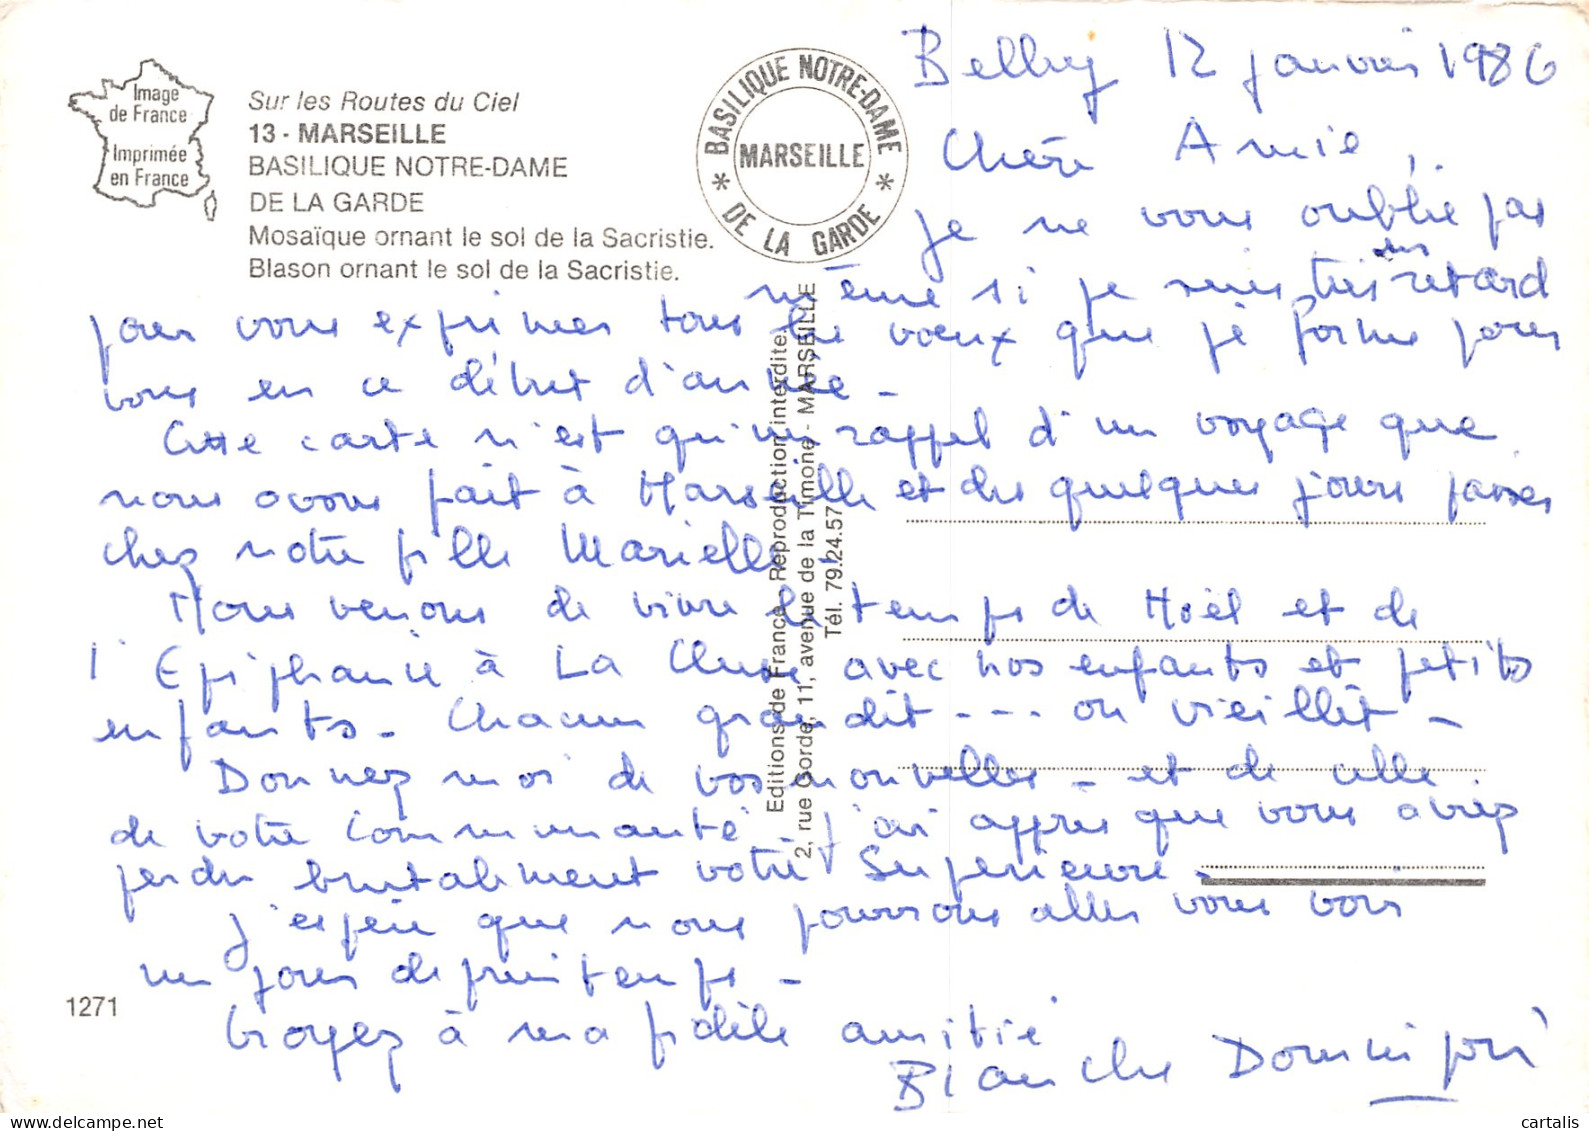 Image
de France
Imprimée
en France
Sur les Routes du Ciel
13 - MARSEILLE
BASILIQUE NOTRE-DAME
DE LA GARDE
Mosaïque ornant le sol de la Sacristie.
Blason ornant le sol de la Sacristie.
* BASILIQUE NOTRE-DAME *
MARSEILLE
DE LA GARDE
12 janvier 1986
Chère Amie,
je ne vous oublie pas
même si je suis très en retard
pour vous exprimer tous les vœux que je forme pour
vous en ce début d'année -
Cette carte n'est qu'un rappel d'un voyage que
nous avons fait à Marseille et des quelques jours passés
chez notre fille Marielle -
Nous venons de vivre le temps de Noël et de
l'Epiphanie à La Cluse avec nos enfants et petits
enfants - Chacun grandit - - - on vieillit -
Donnez moi de vos nouvelles - et de celle
de votre communauté. J'ai appris que vous aviez
perdu brutalement votre Supérieure -
J'espère que nous pourrons aller vous voir
un jour de printemps -
Croyez à ma fidèle amitié
Blanche
Editions de France - Reproduction interdite.
2, rue Gorde, 11, avenue de la Timone - MARSEILLE
Tél. 79.24.57
1271
cartalis
www.delcampe.net